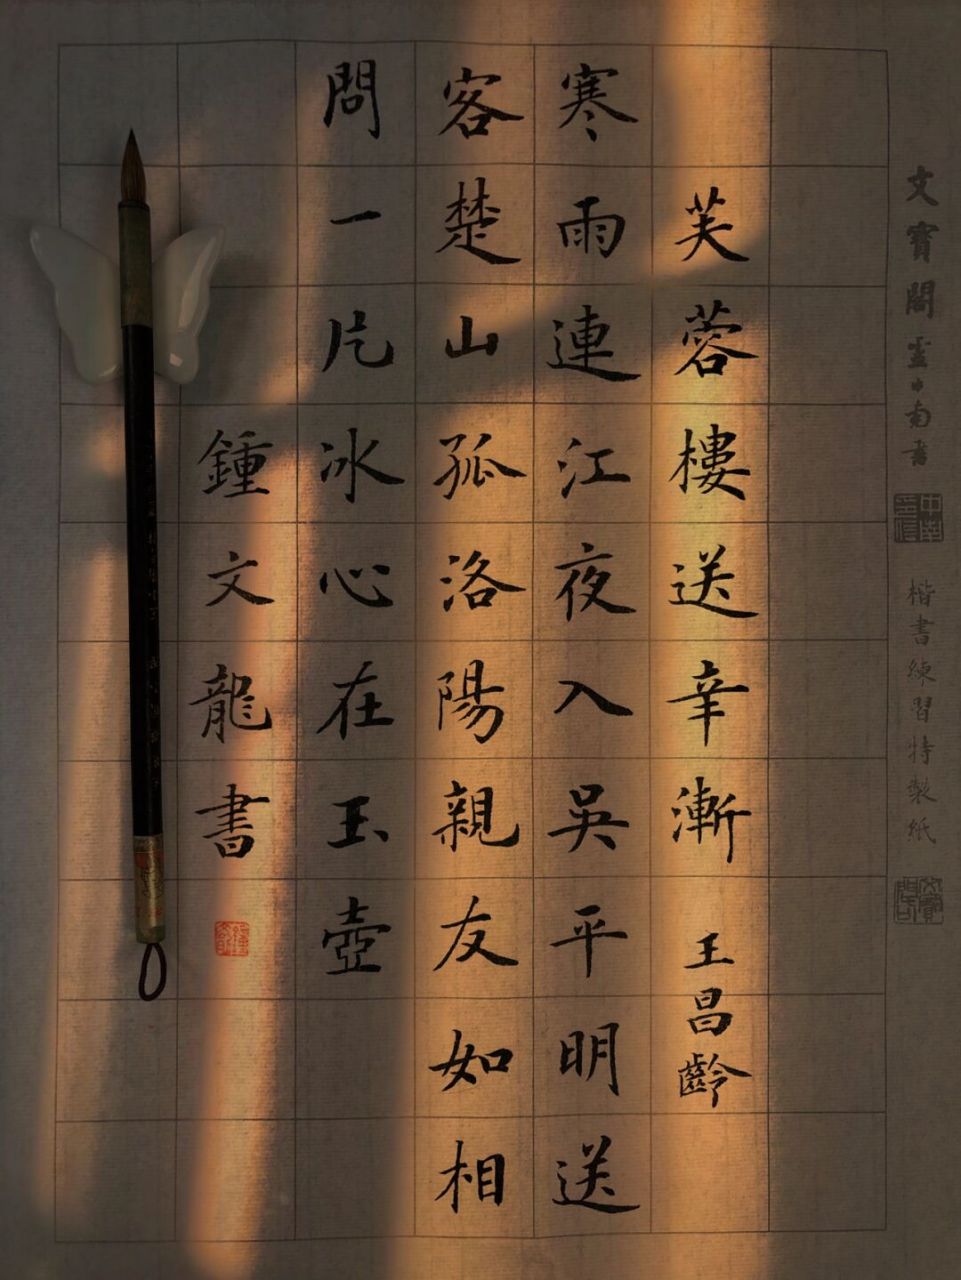 文寶閣
楷書練習特製紙
芙蓉樓送辛漸 王昌齡
寒雨連江夜入吳平明送
客楚山孤洛陽親友如相
問一片冰心在玉壺
鍾文龍書